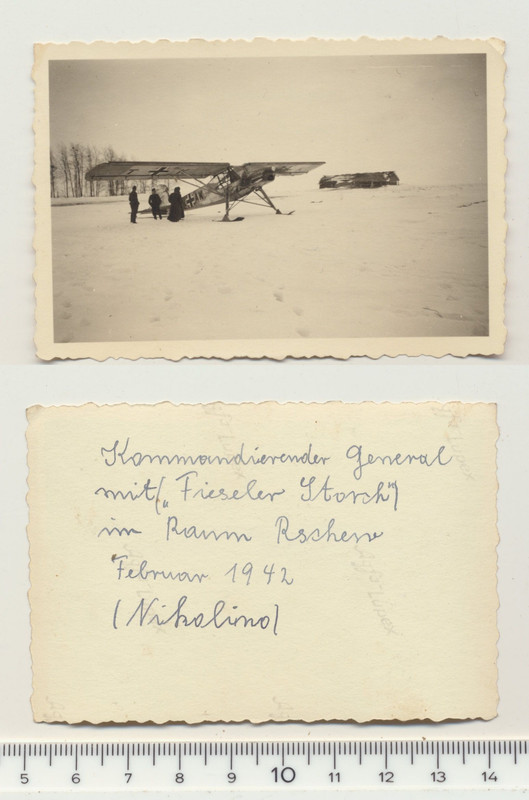 Kommandierender General
mit („Fieseler Storch")
im Raum Rschew
Februar 1942
(Nikolino)
5 6 7 8 9 10 11 12 13 14